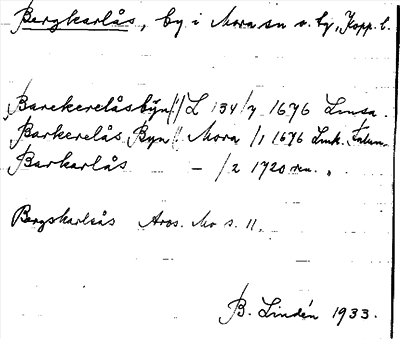 Bergkarlås, by i Mora sn o. tg, Kopp. l.
"Barckerelåsbÿn" L 134/7 1676 Lmsa.
"Barkerelås Byn" Mora /1 1676 Lmk. Falun
Barkarlås — /2 1720 ren. "
Bergskarlsås Aros. Mo s. 11.
B. Lindén 1933.